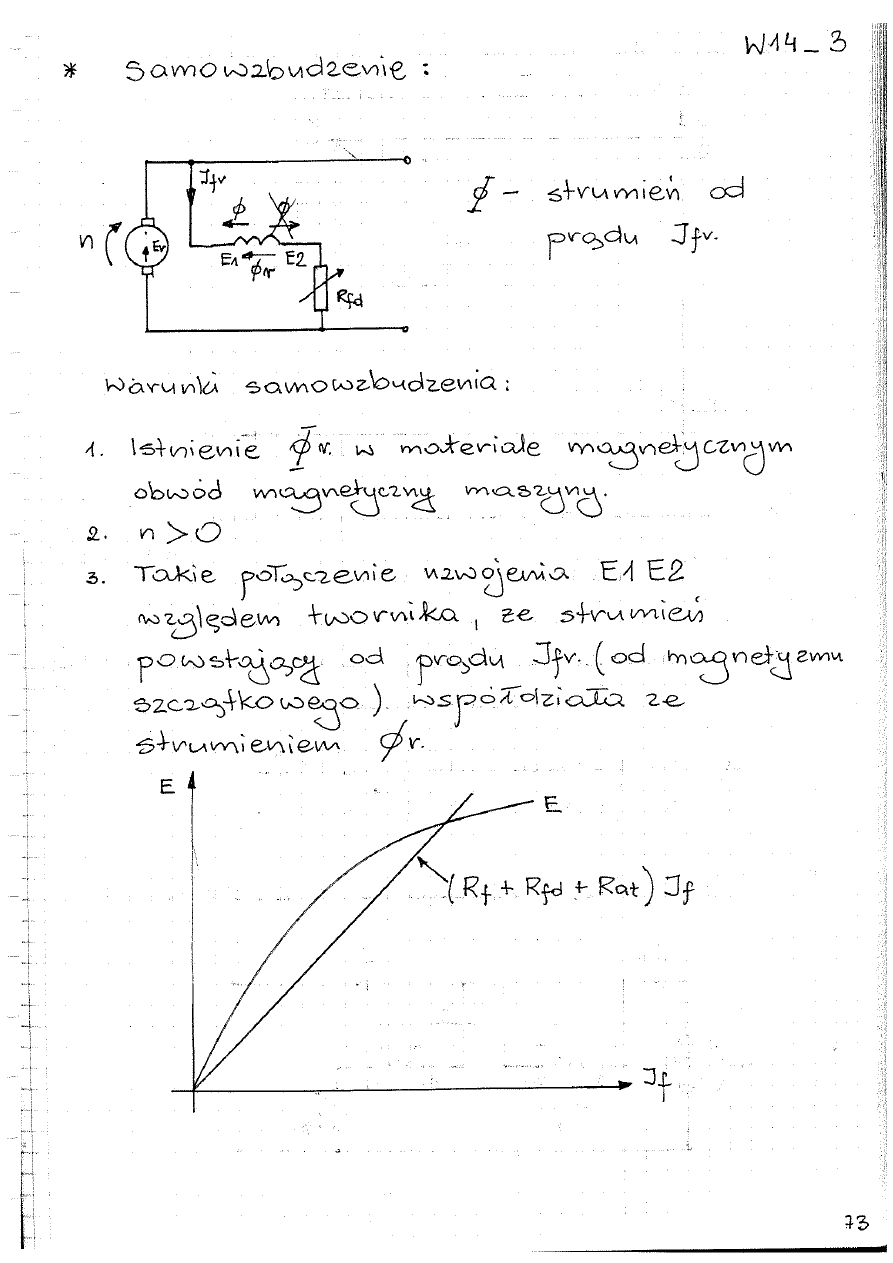 W14_3
* Samowzbudzenie :
Ifr
ϕ ϕ
n Er E1 ϕr E2
Rfd
Φ - strumień od
prądu Ifr.
Warunki samowzbudzenia :
1. Istnienie Φr. w materiale magnetycznym
obwód magnetyczny maszyny.
2. n > 0
3. Takie połączenie uzwojenia E1 E2
względem twornika, że strumień
powstający od prądu Ifr. (od magnetyzmu
szczątkowego) współdziała ze
strumieniem ϕr.
E
E
(Rf + Rfd + Rat) If
If
73